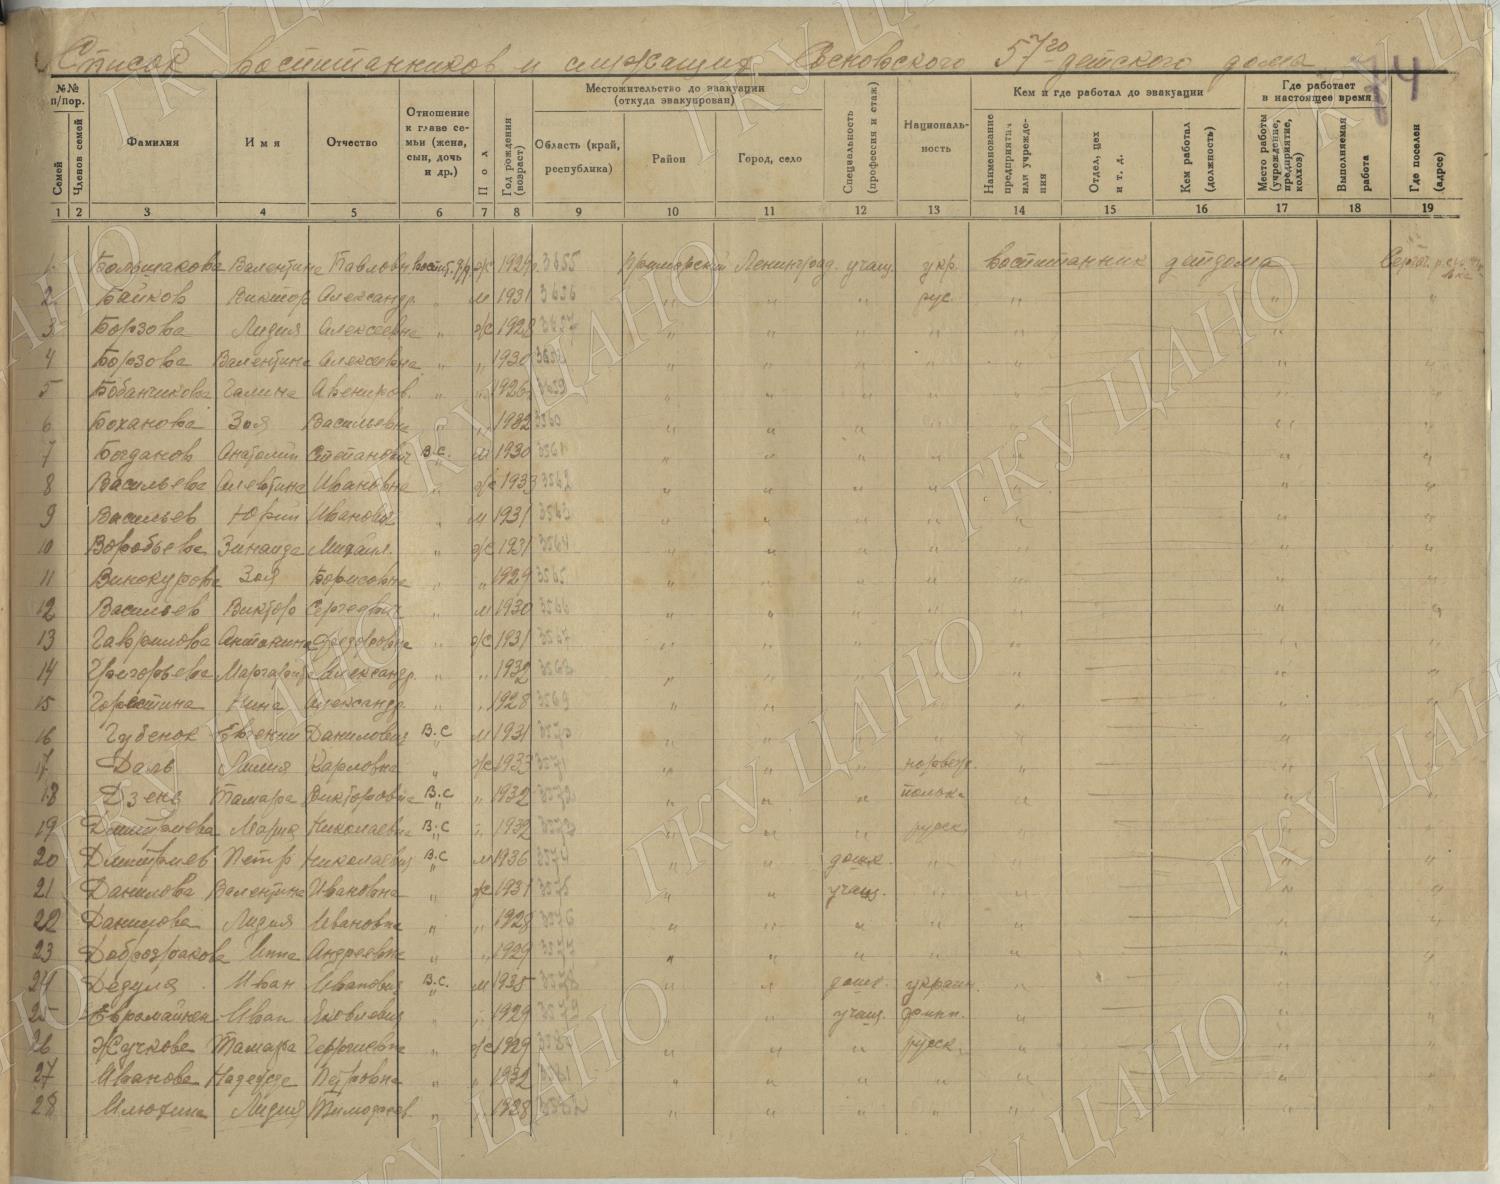 Список воспитанников и служащих Сосновского 57го детского дома
14
№№ п/пор.
Семей
Членов семей
Фамилия
Имя
Отчество
Отношение к главе семьи (жена, сын, дочь и др.)
Пол
Год рождения (возраст)
Местожительство до эвакуации (откуда эвакуирован)
Область (край, республика)
Район
Город, село
Специальность (профессия и стаж)
Националь-ность
Кем и где работал до эвакуации
Наименование предприятия или учрежде-ния
Отдел, цех и т. д.
Кем работал (должность)
Где работает в настоящее время
Место работы (учреждение, предприятие, колхоз)
Выполняемая работа
Где поселен (адрес)
1 2 3 4 5 6 7 8 9 10 11 12 13 14 15 16 17 18 19
1 Большакова Валентина Павловн воспит. ж 1927 Приморский Ленинград учащ. укр. воспитанник детдома
2 Байков Виктор Александр. " м 1931 3656 " " " рус. " " "
3 Борзова Лидия Алексеевна " ж 1928 3657 " " " " " " "
4 Борзова Валентина Алексеевна " " 1930 " " " " " " "
5 Бобанчикова Галина " " 1926 " " " " " " "
6 Боханова Зоя Васильевна " " 1932 3260 " " " " " " "
7 Богданов Анатолий Степанович В.С. м 1930 3261 " " " " " " "
8 Васильева Алевтина Ивановна " ж 1933 3262 " " " " " " "
9 Васильев Юрий Иванович " м 1931 3263 " " " " " " "
10 Воробьева Зинаида Михайл. " ж 1931 3264 " " " " " " "
11 Винокурова Зоя Борисовна " " 1929 3265 " " " " " " "
12 Васильев Виктор Сергеевич " м 1930 3266 " " " " " " "
13 Гаврилова Антонина Федоровна " ж 1931 3267 " " " " " " "
14 Григорьева Маргарита Александр. " " 1932 3268 " " " " " " "
15 Горстина Нина Александр. " " 1928 3269 " " " " " " "
16 Губенок Евгений Данилович В.С м 1931 3270 " " " " " " "
17 Даль Лилия Карловна " ж 1933 3271 " " " норвеж. " " "
18 Дзене Тамара Викторовна В.С " 1932 3272 " " " полька " " "
19 Дмитриева Мария Николаевна В.С " 1932 3273 " " " русск. " " "
20 Дмитриев Петр Николаевич В.С м 1936 3274 " " дошк. " " " "
21 Данилова Валентина Ивановна " ж 1931 3275 " " учащ. " " " "
22 Данилова Лидия Ивановна " " 1928 3276 " " " " " " "
23 Доброзракова Инна Андреевна " " 1929 3277 " " " " " " "
24 Дедуля Иван Иванович В.С. м 1935 3278 " " дошк. украин. " " "
25 Евромайнен Иван Яковлевич " " 1929 3279 " учащ. финн. " " "
26 Жучкова Тамара Георгиевна " ж 1929 3280 " " " русск. " " "
27 Иванова Надежда Петровна " " 1932 3281 " " " " " " "
28 Илюхина Лидия Тимофеев. " " 1928 " " " " " " "
ГКУ ЦАНО